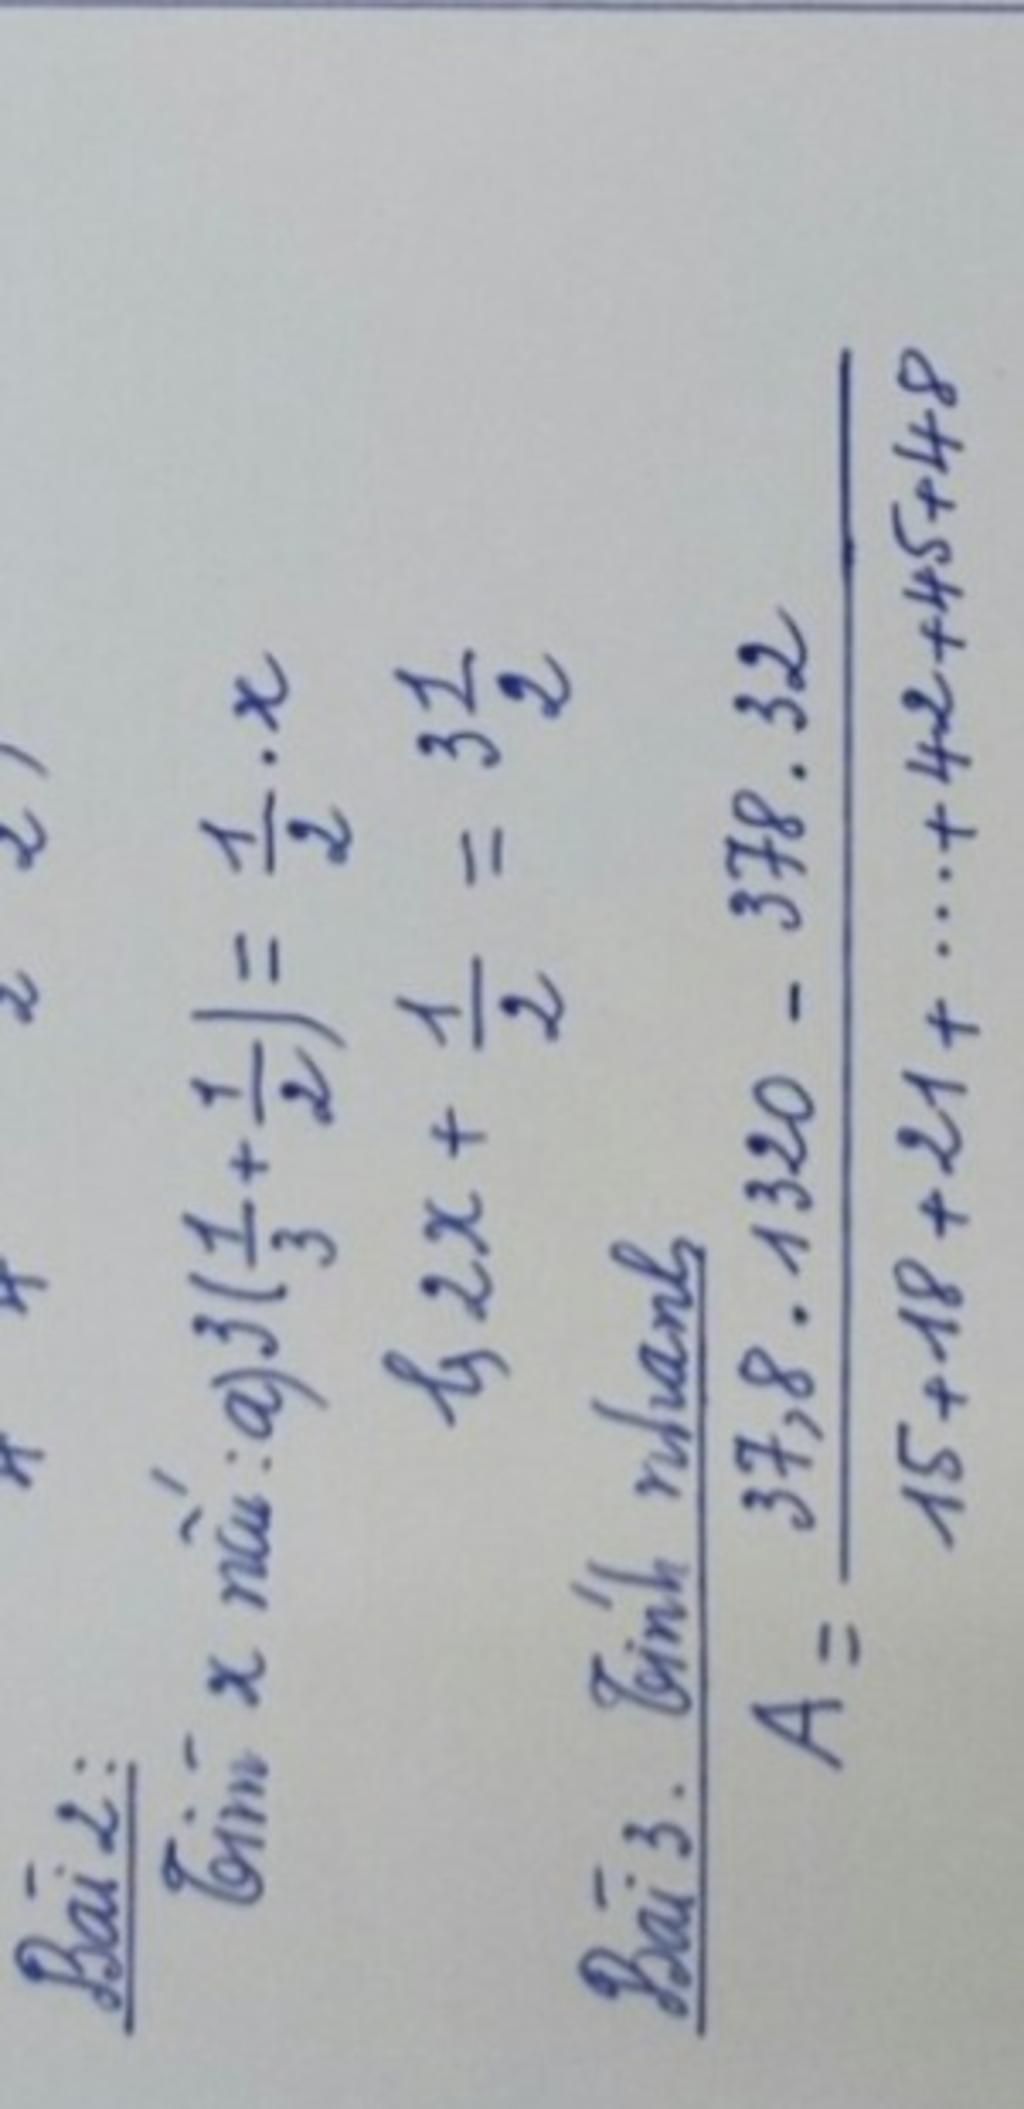 Bài 2:
Tìm x nếu: a) 3(1/3 + 1/2) = 1/2 . x
b) 2x + 1/2 = 3 1/2
Bài 3. Tính nhanh
A = 37,8 . 1320 - 378 . 32
15 + 18 + 21 + .... + 42 + 45 + 48